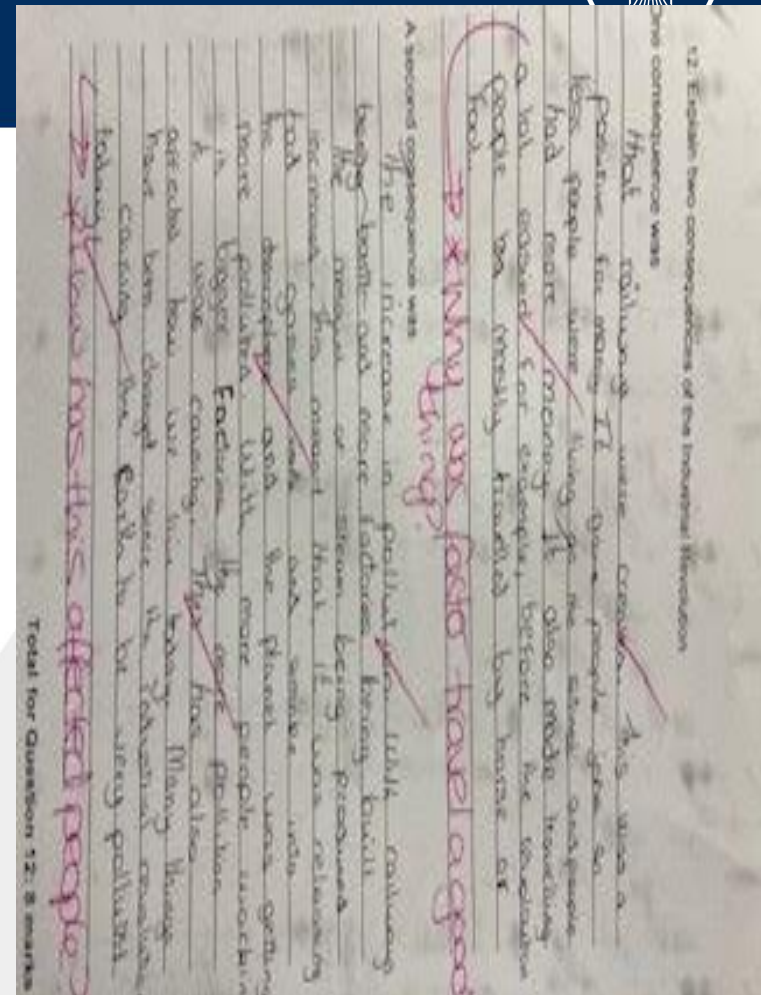 12. Explain two consequences of the Industrial Revolution
One consequence was
that railways were created. This was a
positive for many. It gave people jobs so
less people were living on the street and people
had more money. It also made travelling
a lot easier. For example, before the revolution
people mostly travelled by horse or
foot.
* Why was faster travel a good
thing?
A second consequence was
the increase in pollution. With railways
being built and more factories being built
the amount of steam being produced
increased. This meant that it was releasing
bad gases and smoke into
the atmosphere and the planet was getting
more polluted. With more people working
in bigger Factories the more pollution
it was causing. This has also
affected how we live today. Many things
have been changed since the industrial revolution
causing the Earth to be very polluted
today.
* How has this affected people?
Total for Question 12: 8 marks